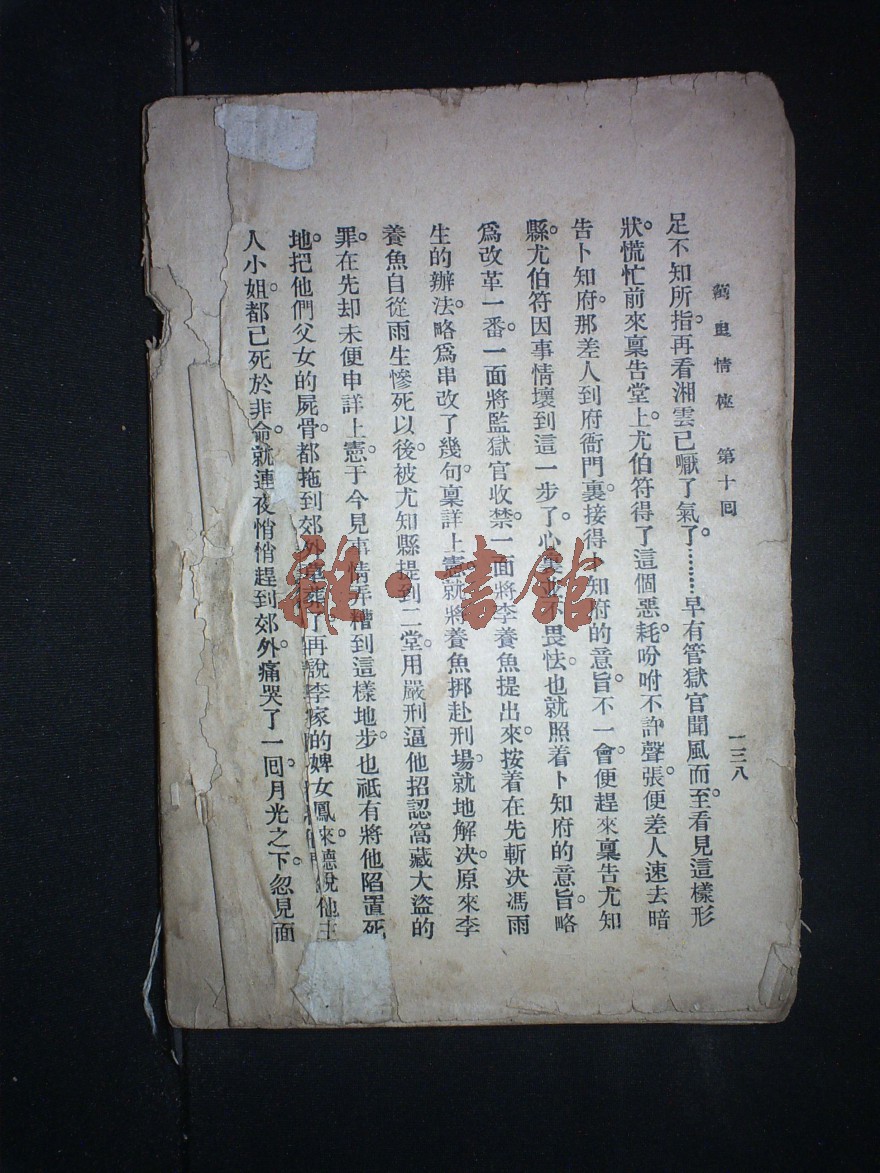 情極　第十回
一三八
足不知所指。再看湘雲已嚥了氣了。………早有管獄官聞風而至。看見這樣形
狀。慌忙前來稟告堂上。尤伯符得了這個惡耗。吩咐不許聲張。便差人速去暗
告卜知府。那差人到府衙門裏。接得卜知府的意旨。不一會。便趕來稟告尤知
縣。尤伯符因事情壞到這一步了。心畏怯。也就照着卜知府的意旨。略
爲改革一番。一面將監獄官收禁。一面將李養魚提出來。按着在先斬决馮雨
生的辦法。略爲串改了幾句。稟詳上憲。就將養魚挷赴刑場。就地解决。原來李
養魚自從雨生慘死以後。被尤知縣提到二堂。用嚴刑逼他招認窩藏大盜的
罪。在先却未便申詳上憲。于今見事情弄糟到這樣地步。也祗有將他陷置死
地。把他們父女的屍骨。都拖到郊外了。再說李家的婢女鳳來。聽說他主
人小姐。都已死於非命。就連夜悄悄趕到郊外。痛哭了一囘。月光之下。忽見面
雜·書館